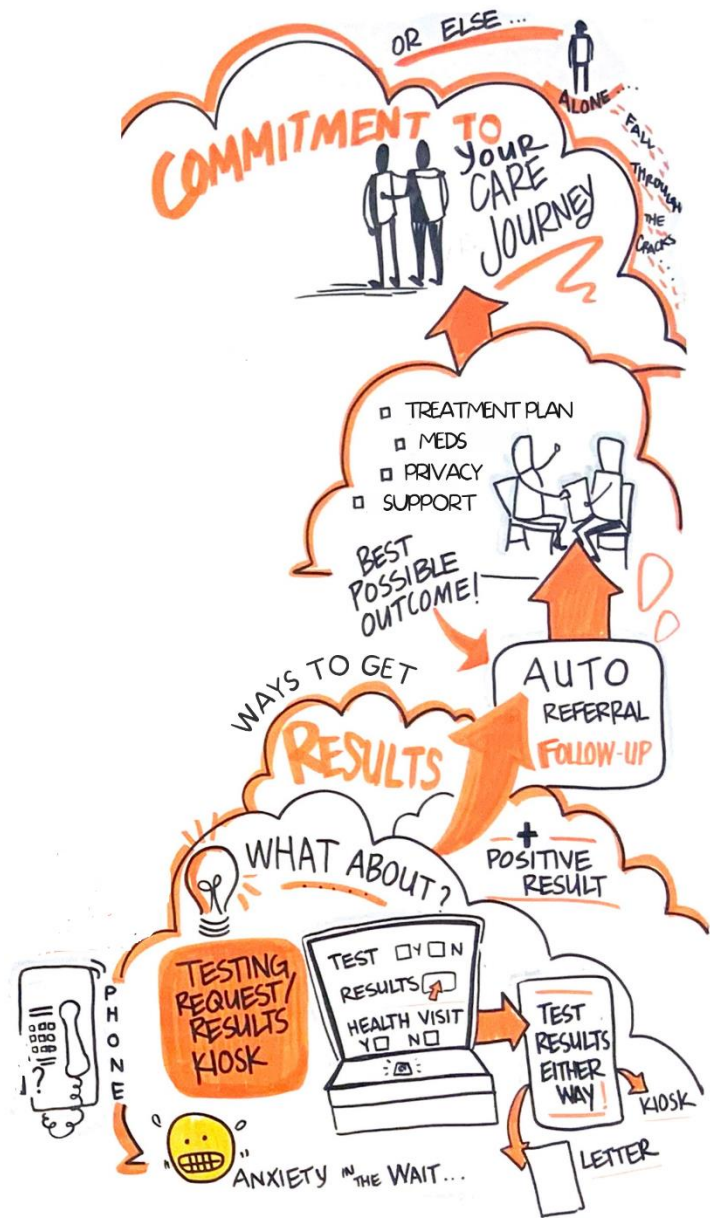 OR ELSE...
ALONE...
FALL
THROUGH
THE
CRACKS...
COMMITMENT TO
YOUR
CARE
JOURNEY
TREATMENT PLAN
MEDS
PRIVACY
SUPPORT
BEST
POSSIBLE
OUTCOME!
AUTO
REFERRAL
FOLLOW-UP
WAYS TO GET
RESULTS
+
POSITIVE
RESULT
WHAT ABOUT?
TESTING
REQUEST/
RESULTS
KIOSK
TEST □Y□N
RESULTS
HEALTH VISIT
Y□ N□
TEST
RESULTS
EITHER
WAY!
KIOSK
LETTER
PHONE
?
ANXIETY IN THE WAIT...